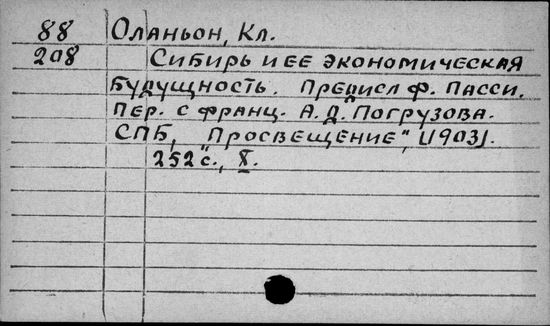 88 Оланьон, Кл.
208 Сибирь и ее экономическая
будущность. Предисл Ф. Пасси.
Пер. с франц. А. Д. Погрузова.
СПБ, „Просвещение", [1903].
252 с., X.